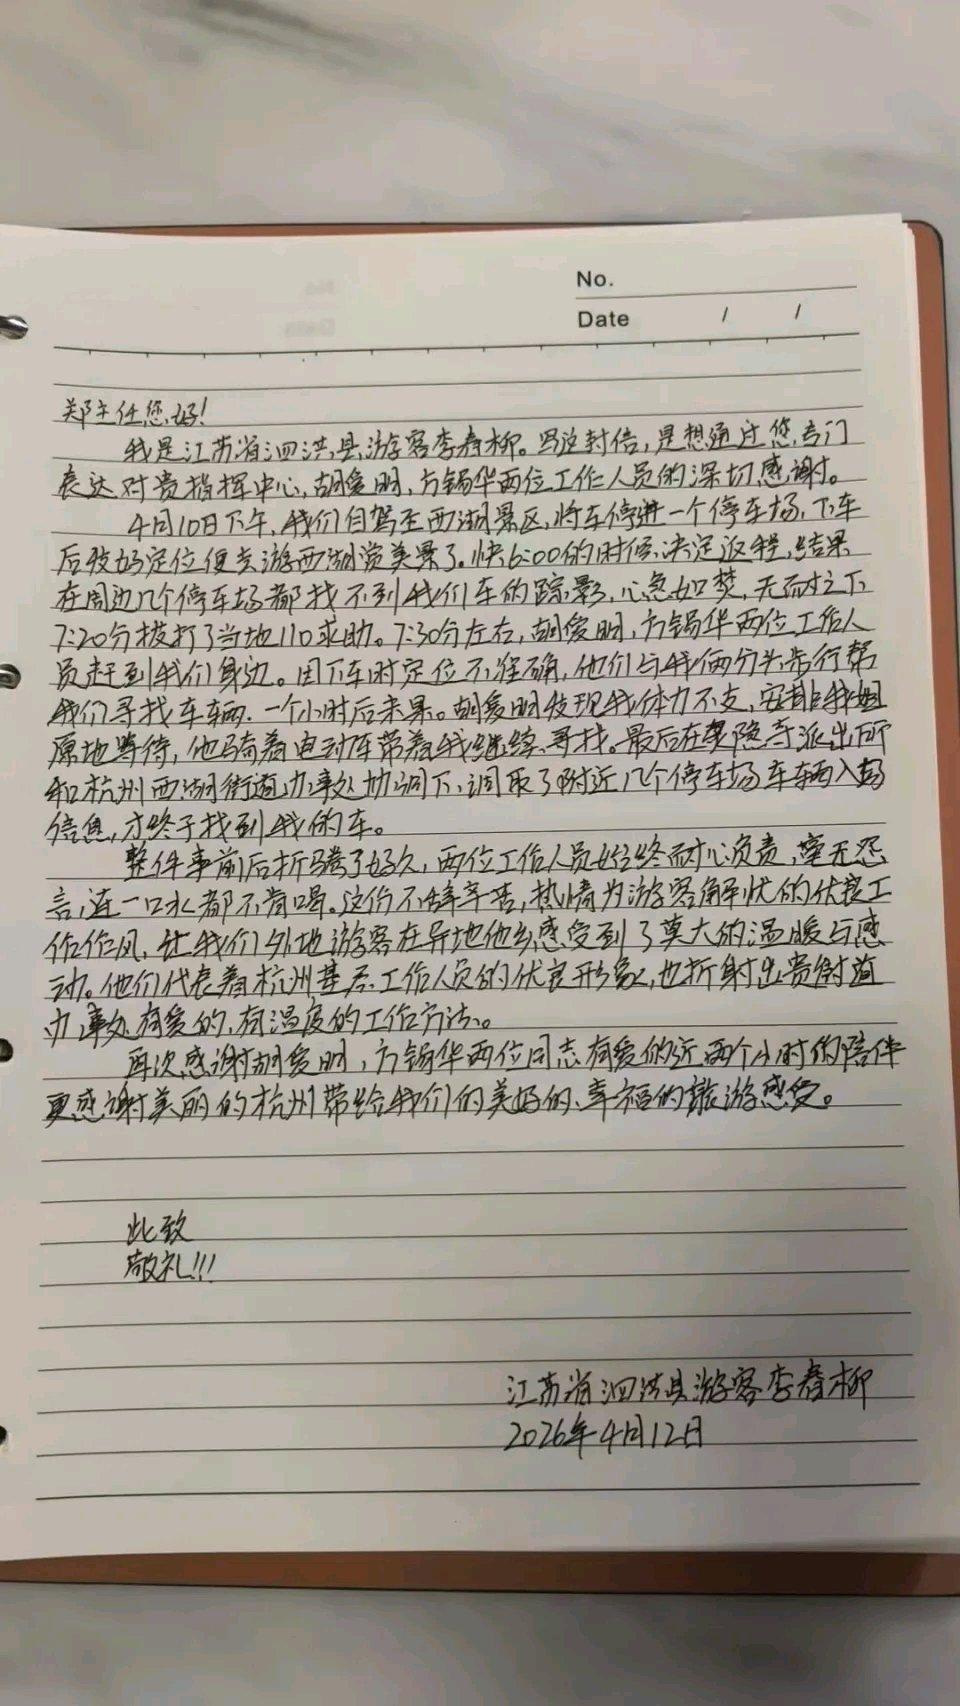 No.
Date / /
郑主任您好!
我是江苏省泗洪县游客李春柳。写这封信,是想通过您,专门
表达对贵指挥中心,胡爱明,方锡华两位工作人员的深切感谢。
4月10日下午,我们自驾至西湖景区,将车停进一个停车场,下车
后发好定位便去游西湖赏美景了。快6:00的时候决定返程,结果
在周边几个停车场都找不到我们车的踪影,心急如焚,无奈之下
7:20分拨打了当地110求助。7:30分左右,胡爱明,方锡华两位工作人
员赶到我们身边。因下车时定位不准确,他们与我俩分头步行帮
我们寻找车辆,一个小时后未果。胡爱明发现我体力不支,安排我姐
原地等待,他骑着电动车带着我继续寻找。最后在灵隐寺派出所
和杭州西湖街道办事处协调下,调取了附近几个停车场车辆入场
信息,才终于找到我的车。
整件事前后折腾了好久,两位工作人员始终耐心负责,毫无怨
言,连一口水都不肯喝。这份不辞辛苦,热情为游客解忧的优良工
作作风,让我们外地游客在异地他乡感受到了莫大的温暖与感
动。他们代表着杭州基层工作人员的优良形象,也折射出贵街道
办事处有爱的、有温度的工作方法。
再次感谢胡爱明,方锡华两位同志有爱的近两个小时的陪伴
更感谢美丽的杭州带给我们的美好的、幸福的旅游感受。
此致
敬礼!!!
江苏省泗洪县游客李春柳
2026年4月12日